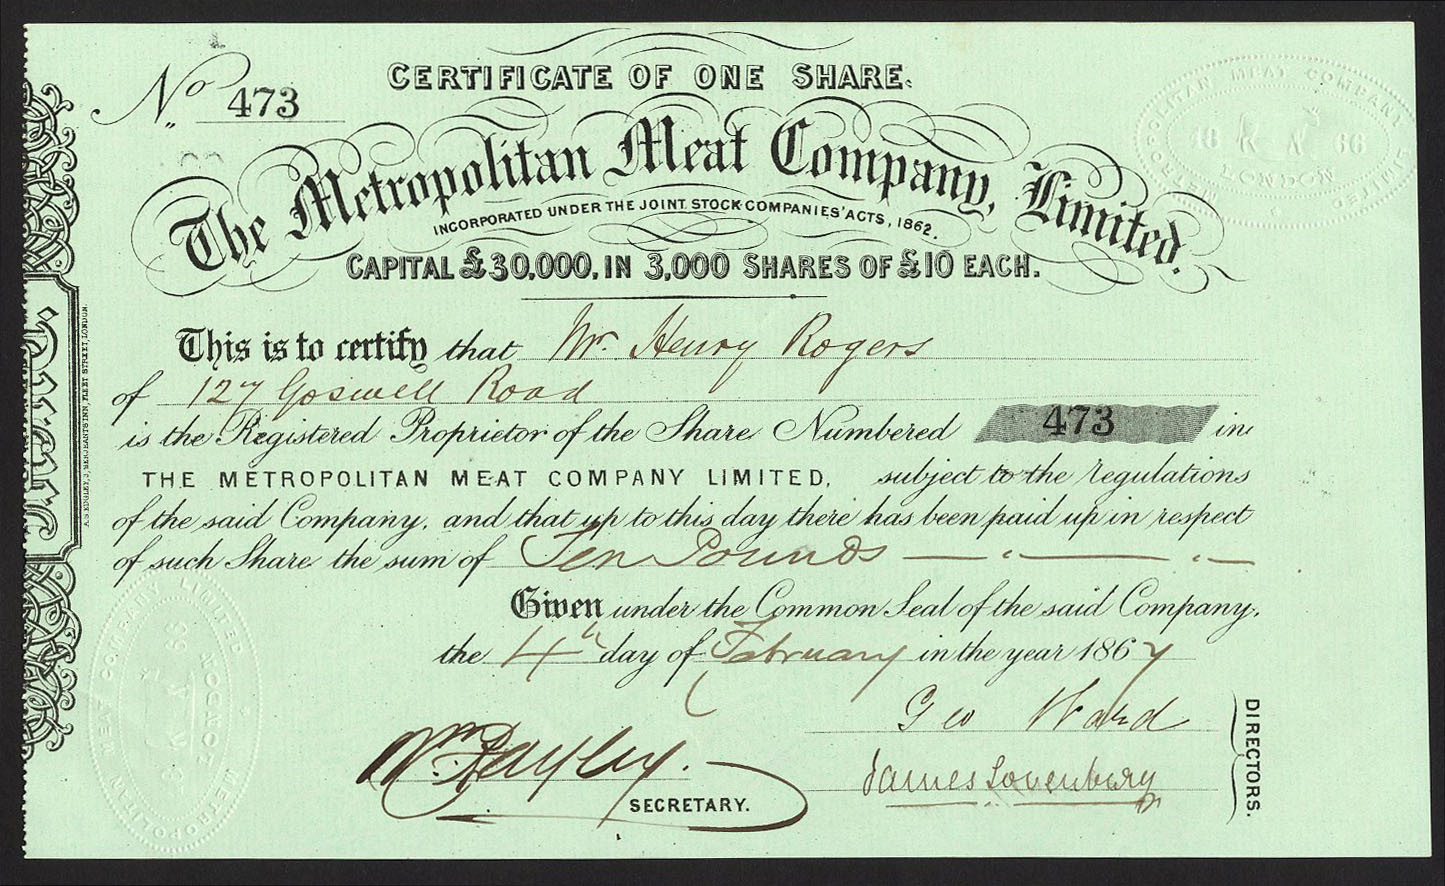 No 473
CERTIFICATE OF ONE SHARE.
The Metropolitan Meat Company, Limited.
INCORPORATED UNDER THE JOINT STOCK COMPANIES' ACTS, 1862.
CAPITAL £30,000, IN 3,000 SHARES OF £10 EACH.
This is to certify that Mr. Henry Rogers
of 127 Goswell Road
is the Registered Proprietor of the Share Numbered 473 in
THE METROPOLITAN MEAT COMPANY LIMITED, subject to the regulations
of the said Company, and that up to this day there has been paid up in respect
of such Share the sum of Ten Pounds
Given under the Common Seal of the said Company,
the 4th day of February in the year 1867
Geo Ward
James Lovenbury
DIRECTORS.
Wm. Bayley.
SECRETARY.
METROPOLITAN MEAT COMPANY LIMITED
1866
LONDON
METROPOLITAN MEAT COMPANY LIMITED
1866
LONDON